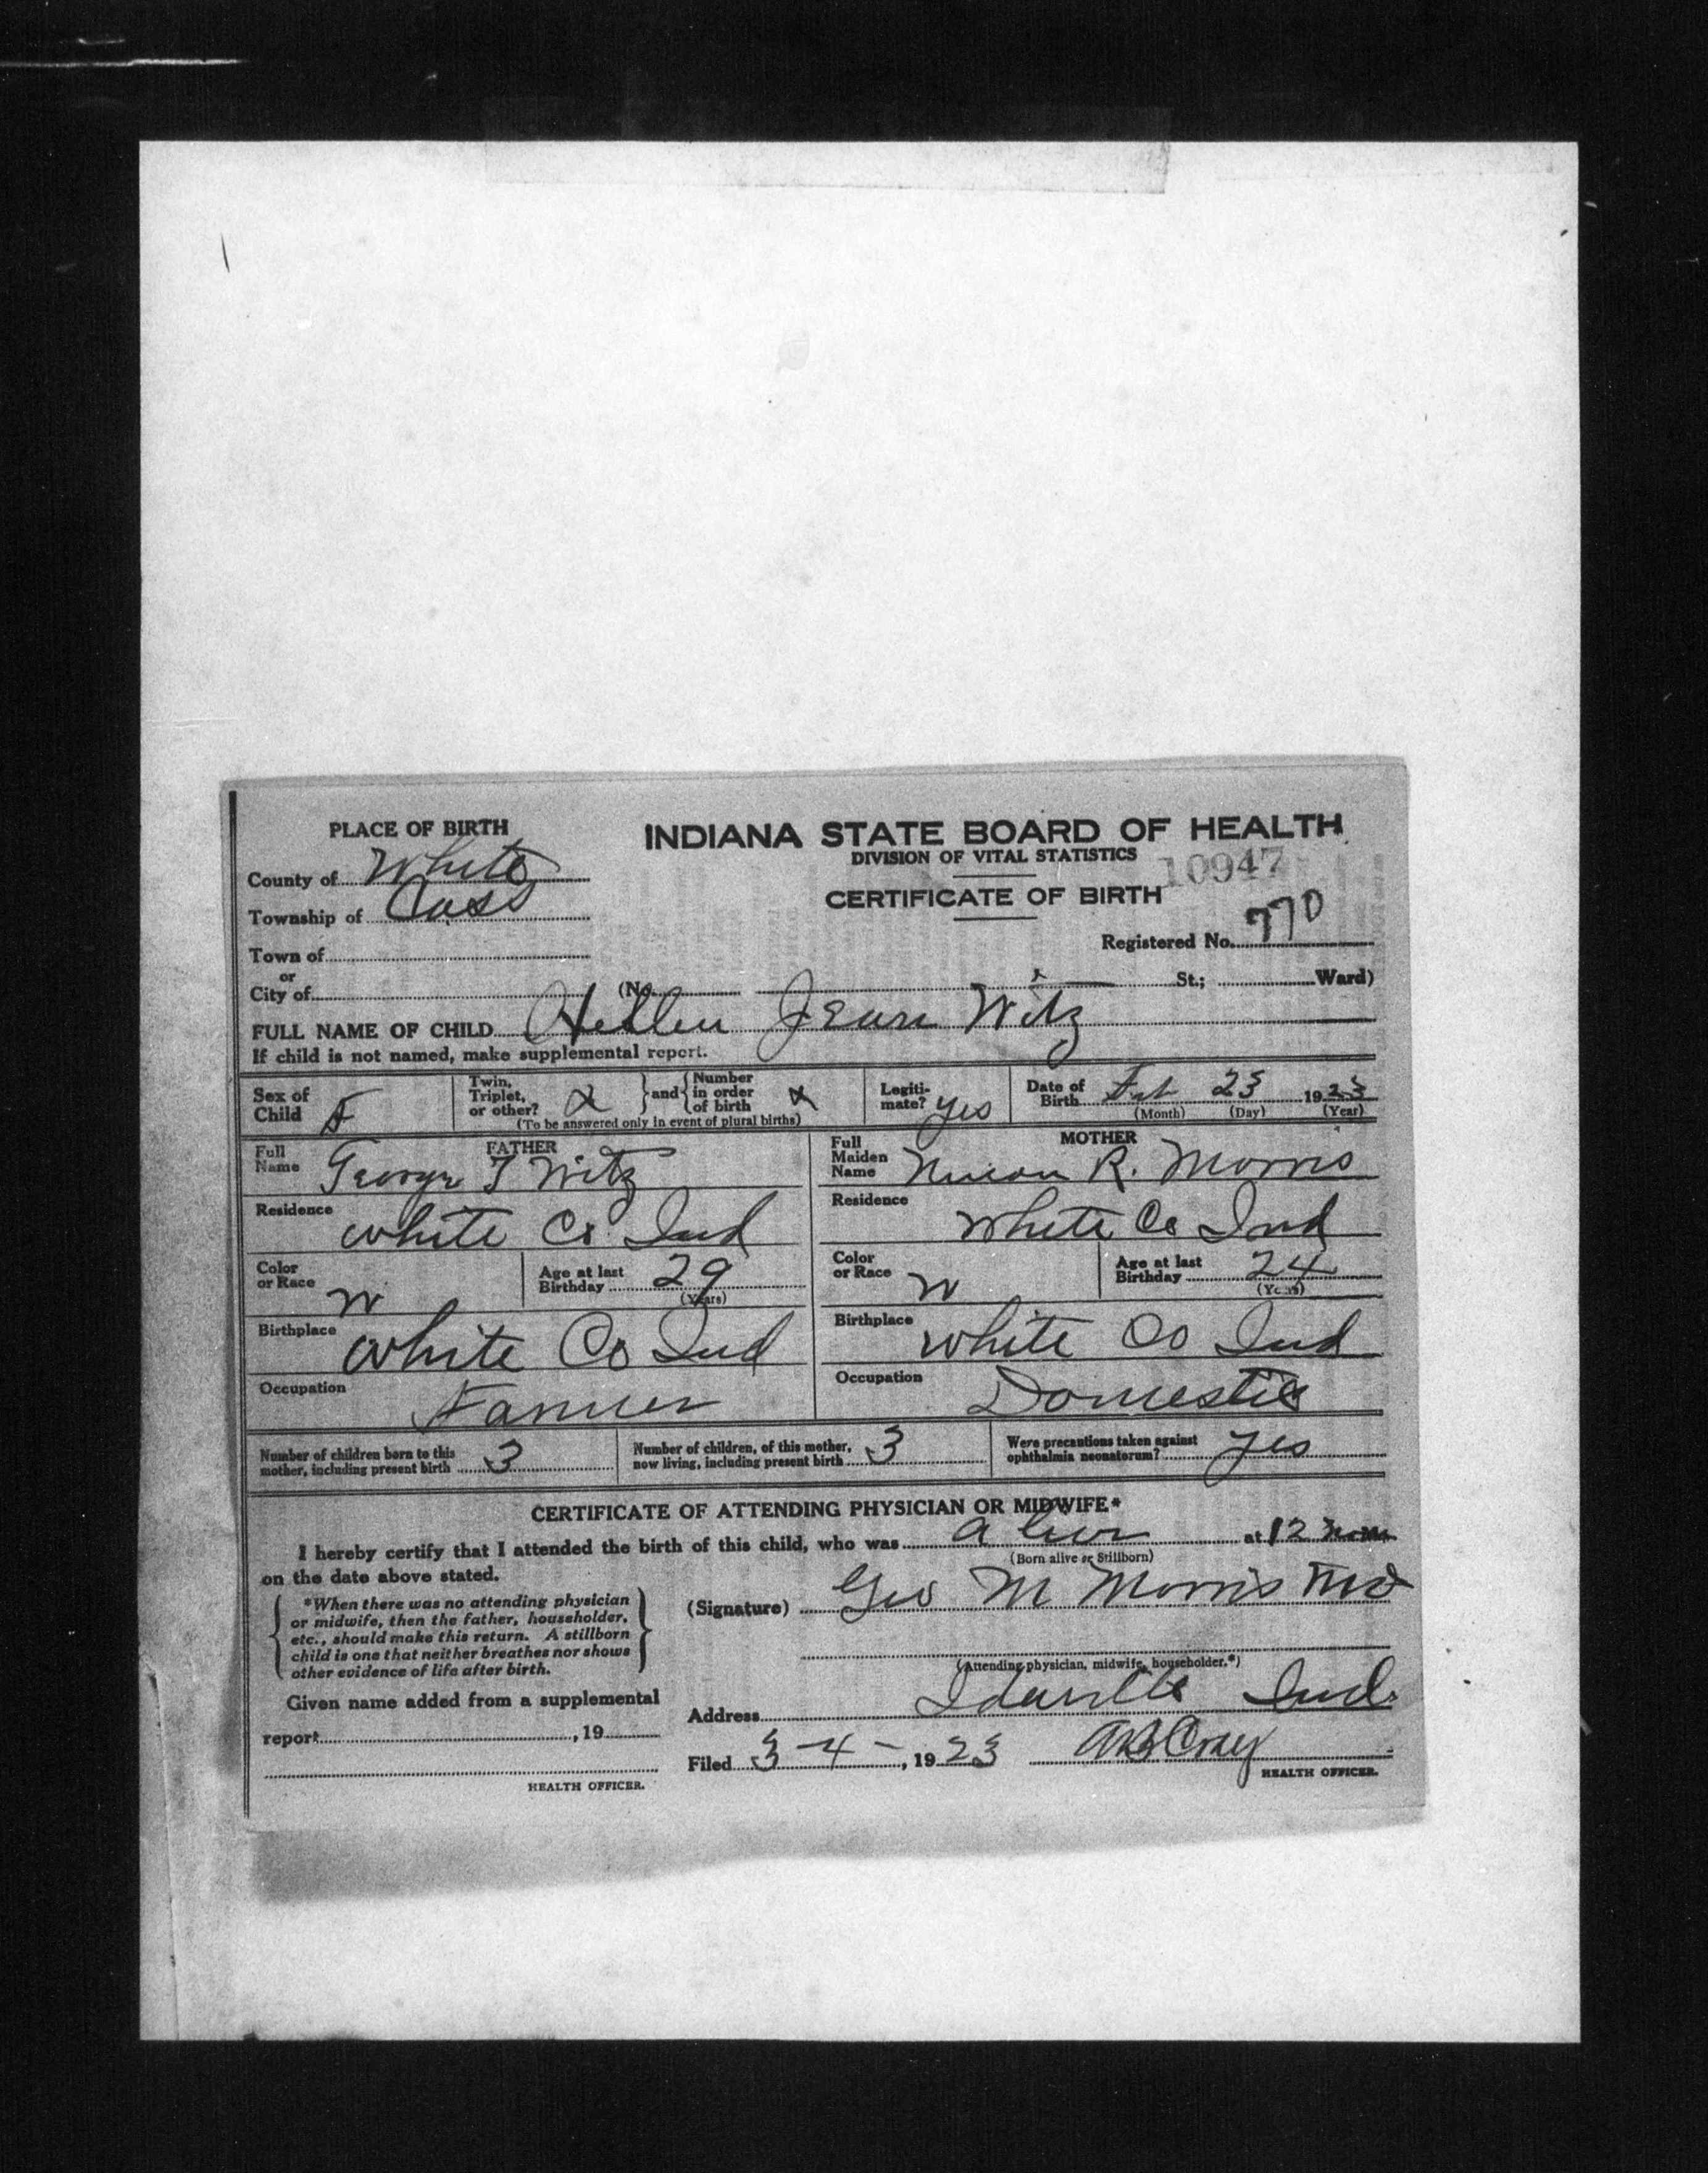 PLACE OF BIRTH
INDIANA STATE BOARD OF HEALTH
DIVISION OF VITAL STATISTICS
10947
County of White
CERTIFICATE OF BIRTH
Township of Cass
Registered No. 770
Town of
or
City of (No. St.; Ward)
FULL NAME OF CHILD Hellen Jean Witz
If child is not named, make supplemental report.
Sex of Child F
Twin, Triplet, or other? and Number in order of birth
(To be answered only in event of plural births)
Legiti-mate? yes
Date of Birth Feb 23 1923
(Month) (Day) (Year)
FATHER
Full Name George T Witz
MOTHER
Full Maiden Name R. Morris
Residence White Co Ind
Residence White Co Ind
Color or Race W
Age at last Birthday 29
(Years)
Color or Race W
Age at last Birthday 24
(Years)
Birthplace White Co Ind
Birthplace White Co Ind
Occupation Farmer
Occupation Domestic
Number of children born to this mother, including present birth 3
Number of children, of this mother, now living, including present birth 3
Were precautions taken against ophthalmia neonatorum? yes
CERTIFICATE OF ATTENDING PHYSICIAN OR MIDWIFE*
I hereby certify that I attended the birth of this child, who was at 12
(Born alive or Stillborn)
on the date above stated.
*When there was no attending physician
or midwife, then the father, householder,
etc., should make this return. A stillborn
child is one that neither breathes nor shows
other evidence of life after birth.
(Signature) Geo M Morris MD
(Attending physician, midwife, householder.*)
Given name added from a supplemental
report , 19
Address Idaville Ind.
Filed 3-4-, 1923
HEALTH OFFICER.
HEALTH OFFICER.